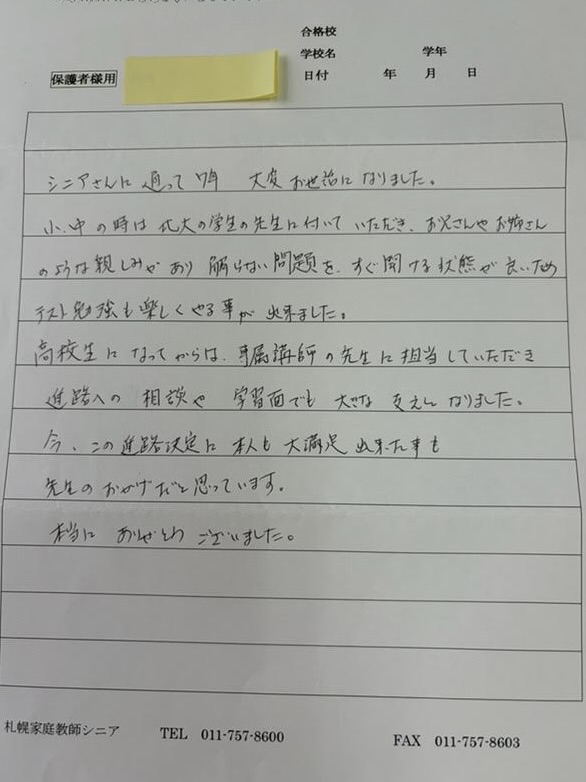 合格校
学校名 学年
保護者様用 日付 年 月 日
シニアさんに通って7年 大変お世話になりました。
小、中の時は北大の学生の先生に付いていただき、お兄さんやお姉さん
のような親しみがあり 解らない問題を、すぐ聞ける状態が良いため
テスト勉強も楽しくやる事が出来ました。
高校生になってからは、専属講師の先生に担当していただき
進路への相談や 学習面でも大きな支えになりました。
今、この進路決定に本人も大満足出来た事も
先生のおかげだと思っています。
本当に ありがとう ございました。
札幌家庭教師シニア TEL 011-757-8600 FAX 011-757-8603